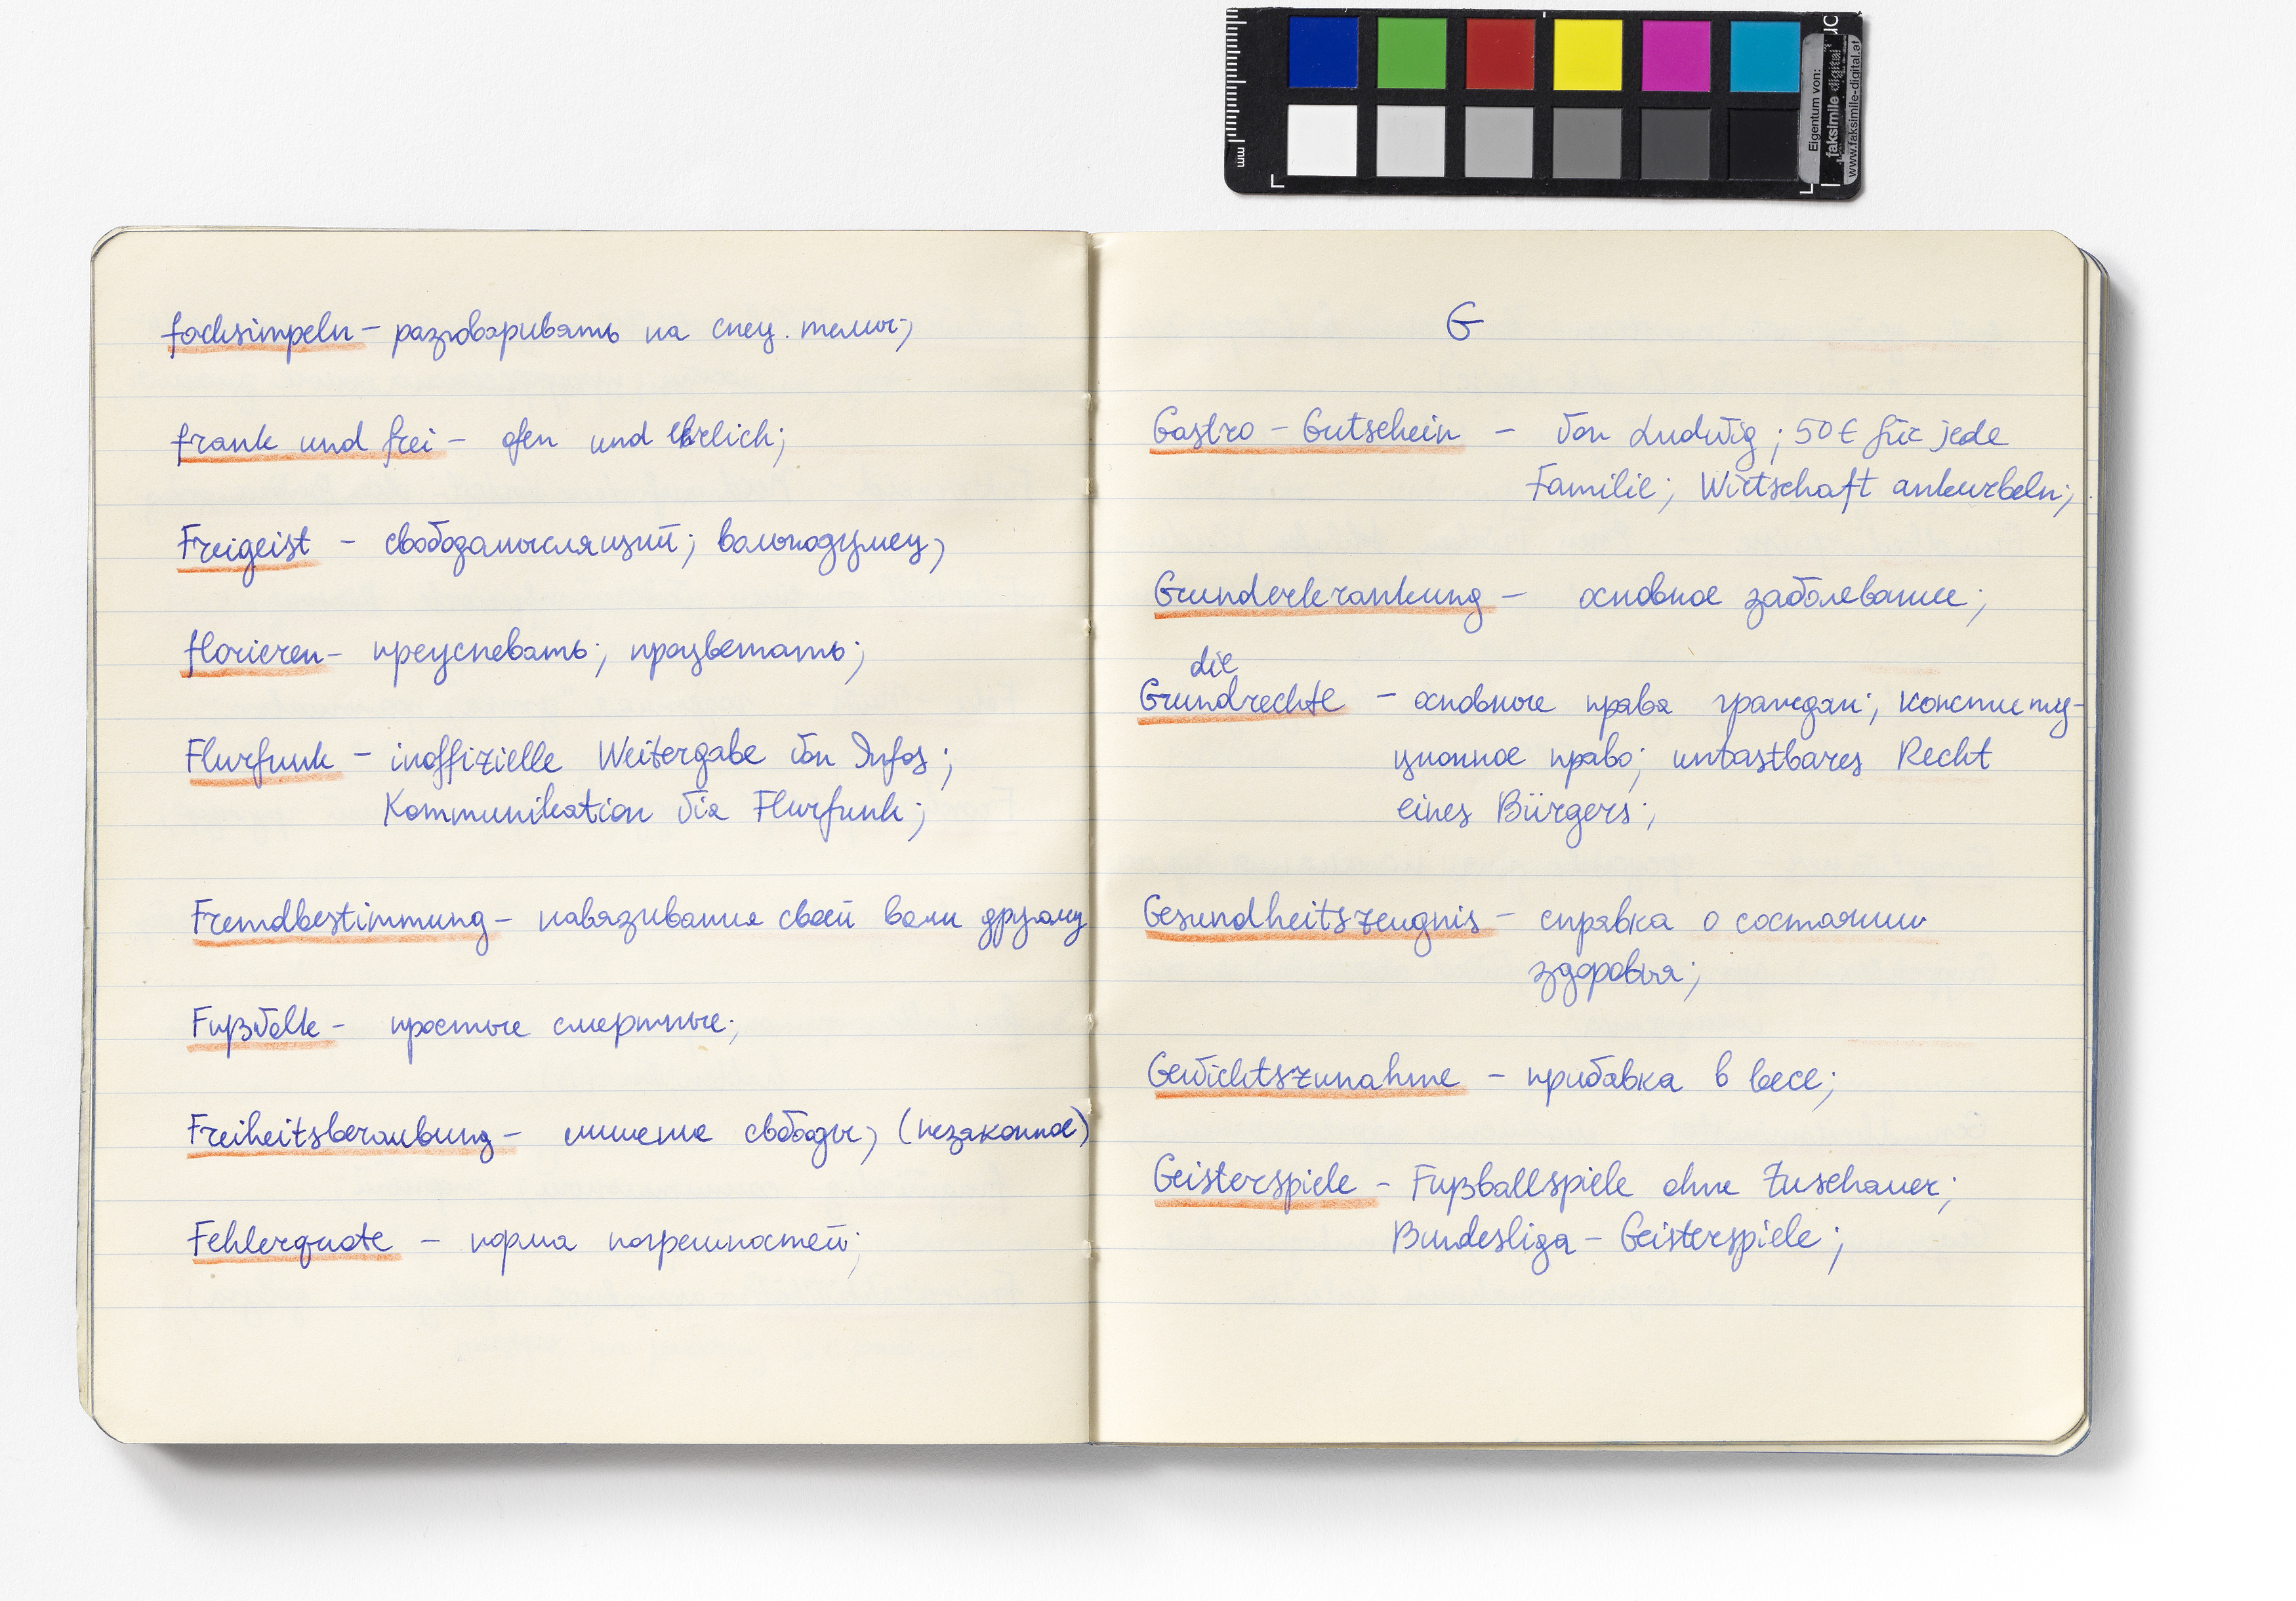 fachsimpeln – разговаривать на спец. темы;
frank und frei – offen und ehrlich;
Freigeist – свободомыслящий; вольнодумец;
florieren – преуспевать; процветать;
Flurfunk – inoffizielle Weitergabe von Infos;
Kommunikation via Flurfunk;
Fremdbestimmung – навязывание своей воли другому
Fußvolk – простые смертные;
Freiheitsberaubung – лишение свободы; (незаконное)
Fehlerquote – норма погрешностей;
G
Gastro – Gutschein – von Ludwig; 50€ für jede
Familie; Wirtschaft ankurbeln;
Grunderkrankung – основное заболевание;
die
Grundrechte – основные права граждан; конститу-
ционное право; untastbares Recht
eines Bürgers;
Gesundheitszeugnis – справка о состоянии
здоровья;
Gewichtszunahme – прибавка в весе;
Geisterspiele – Fußballspiele ohne Zuschauer;
Bundesliga – Geisterspiele;
mm
Eigentum von:
faksimile digital
www.faksimile-digital.at